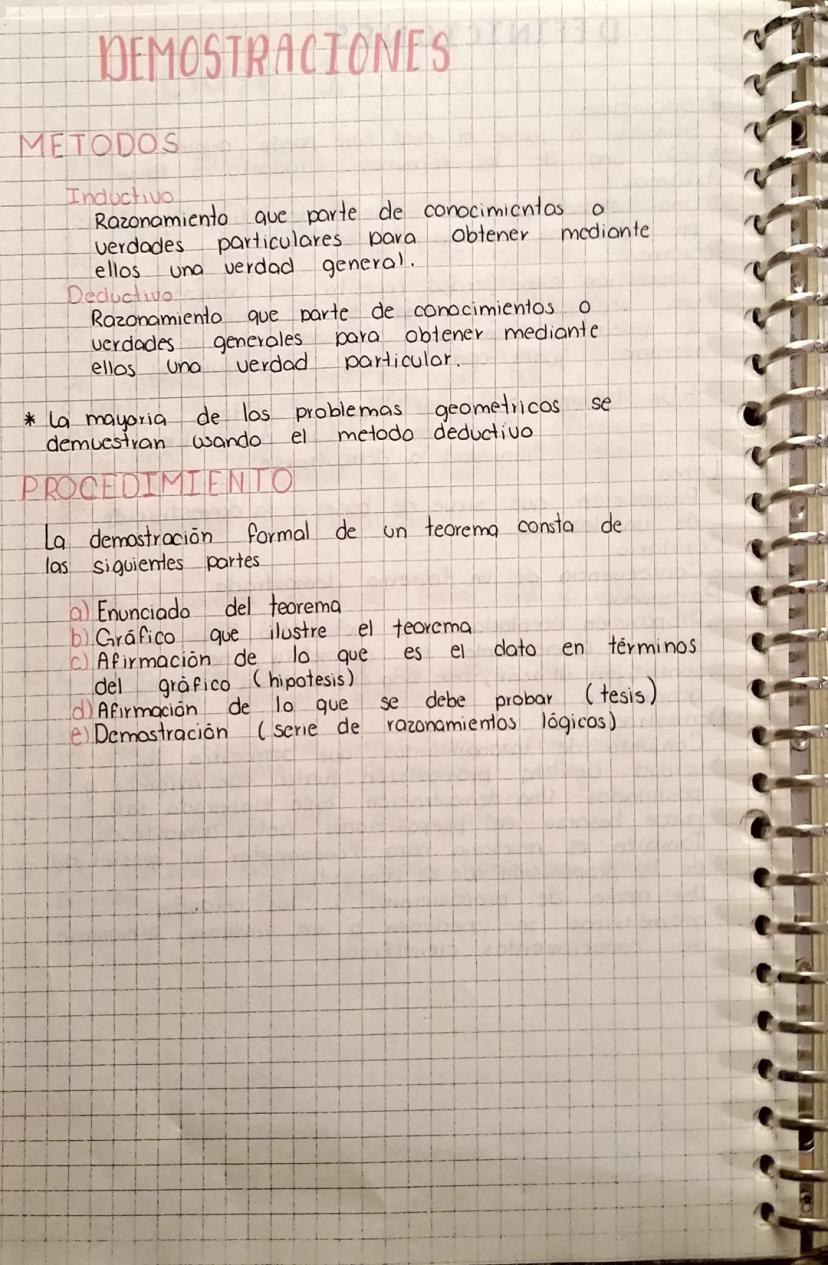 DEMOSTRACIONES
METODOS
Inductivo
Razonamiento que parte de conocimientos o
verdades particulares para obtener mediante
ellos una verdad general.
Deductivo
Razonamiento que parte de conocimientos o
verdades generales para obtener mediante
ellos una verdad particular.
* La mayoria de los problemas geometricos se
demuestran usando el metodo deductivo
PROCEDIMIENTO
La demostración formal de un teorema consta de
las siguientes partes
a) Enunciado del teorema
b) Gráfico que ilustre el teorema
c) Afirmación de lo que es el dato en términos
del gráfico (hipotesis)
d) Afirmación de lo que se debe probar (tesis)
e) Demostración (serie de razonamientos lógicos)